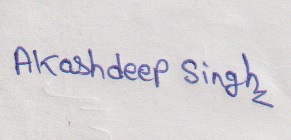 Akashdeep Singh